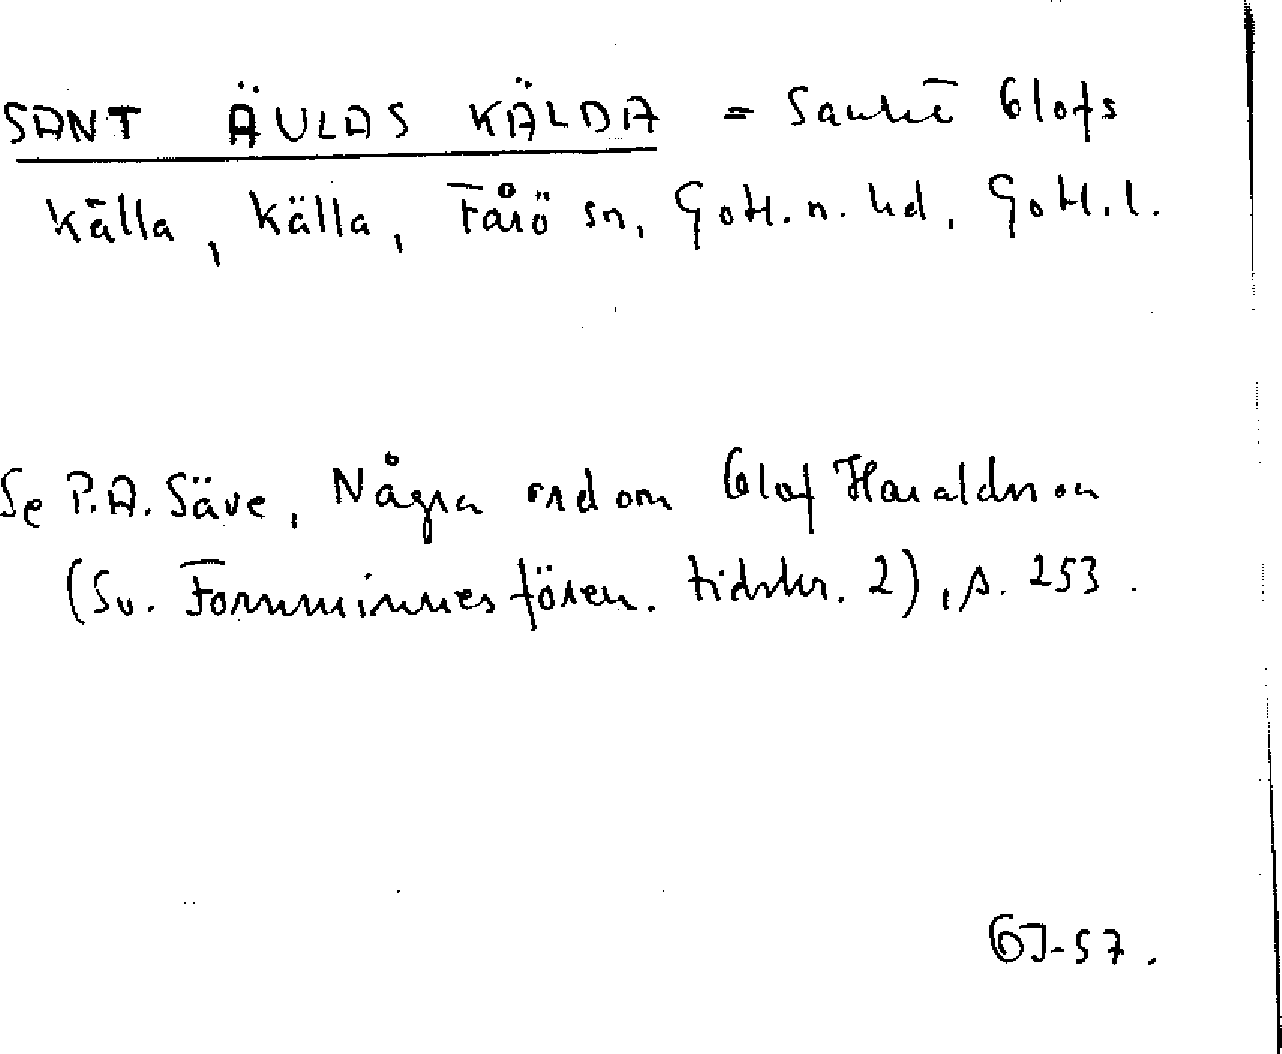 SANT ÄULAS KÄLDA = Sankt Olofs
källa, källa, Fårö sn, Gotl. n. hd, Gotl. l.
Se P.A. Säve, Några ord om Olof Haraldsson
(Sv. Fornminnesfören. tidskr. 2), s. 253.
OJ-57.